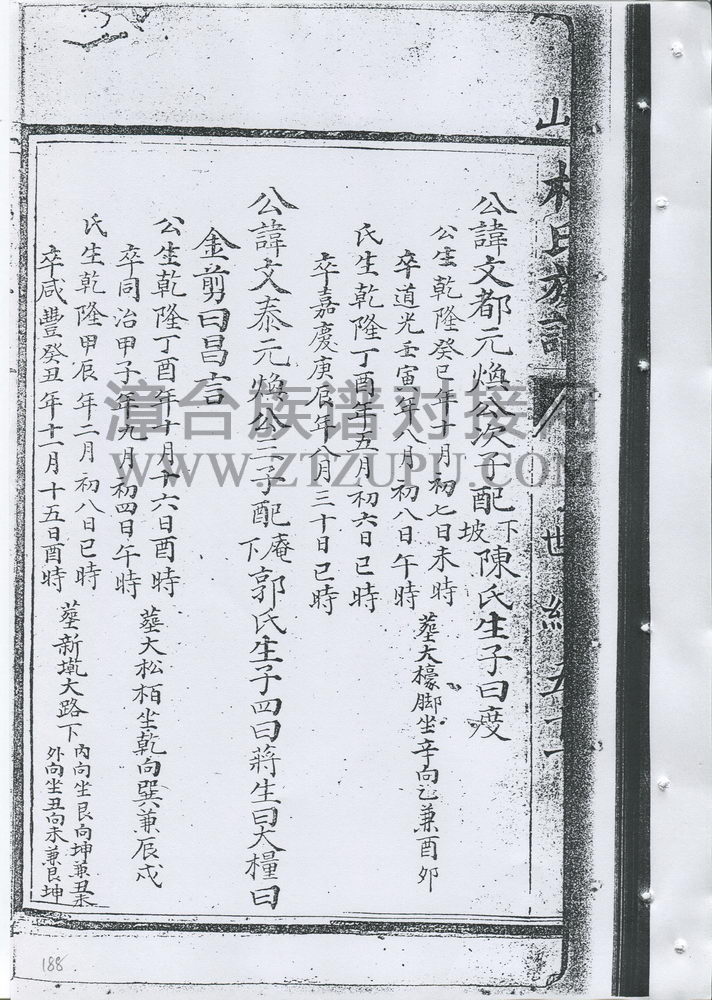 公諱文都元煥公次子配下坡陳氏生子曰度
公生乾隆癸巳年十月初七日未時
卒道光壬寅年八月初八日午時
塟大檺脚坐辛向乙兼酉卯
氏生乾隆丁酉年五月初六日巳時
卒嘉慶庚辰年八月三十日巳時
公諱文泰元煥公三子配庵下郭氏生子四曰蔣生曰大糧曰
金剪曰昌言
公生乾隆丁酉年十月十六日酉時
卒同治甲子年九月初四日午時
塟大松栢坐乾向巽兼辰戌
氏生乾隆甲辰年二月初八日巳時
卒咸豐癸丑年十一月十五日酉時
塟新塘大路下
內向坐艮向坤兼丑未
外向坐丑向未兼艮坤
漳台族谱对接网
WWW.ZTZUPU.COM
188